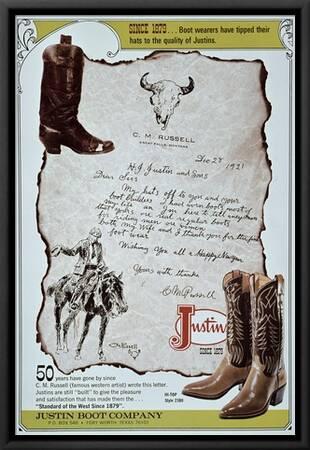 SINCE 1879 . . . Boot wearers have tipped their
hats to the quality of Justins.
C. M. RUSSELL
GREAT FALLS, MONTANA
Dec 28 1921
H.J. Justin and Sons
Dear Sirs
My hats off to you and your
boot builders I have worn boots most of
my life an Im here to tell anybody
that yours are real regular boots
for riding men or women
both my wife and I thank you for the fine
foot wear
Wishing You all a Happy
Yours with thanks
C M Russell
CM Russell
Justin
SINCE 1879
50 years have gone by since
C. M. Russell (famous western artist) wrote this letter.
Justins are still "built" to give the pleasure
and satisfaction that has made them the . . .
"Standard of the West Since 1879".
HI-TOP
Style 2189
JUSTIN BOOT COMPANY
P.O. BOX 548 • FORT WORTH, TEXAS 76101